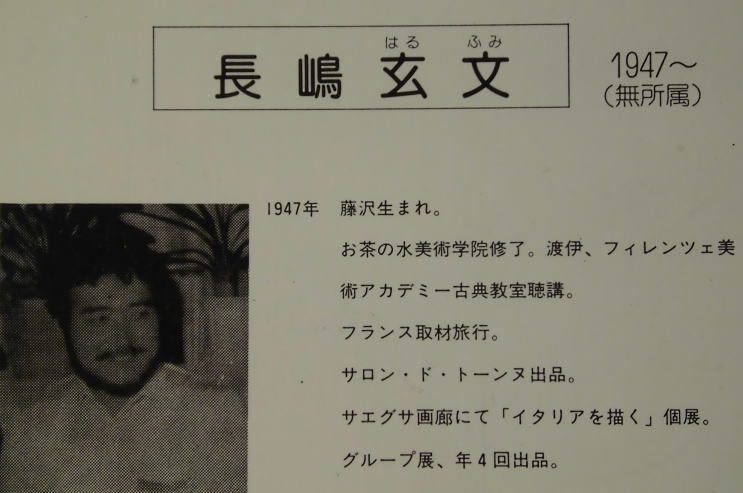 はる ふみ
長嶋玄文
1947〜
(無所属)
1947年 藤沢生まれ。
お茶の水美術学院修了。渡伊、フィレンツェ美
術アカデミー古典教室聴講。
フランス取材旅行。
サロン・ド・トーンヌ出品。
サエグサ画廊にて「イタリアを描く」個展。
グループ展、年4回出品。